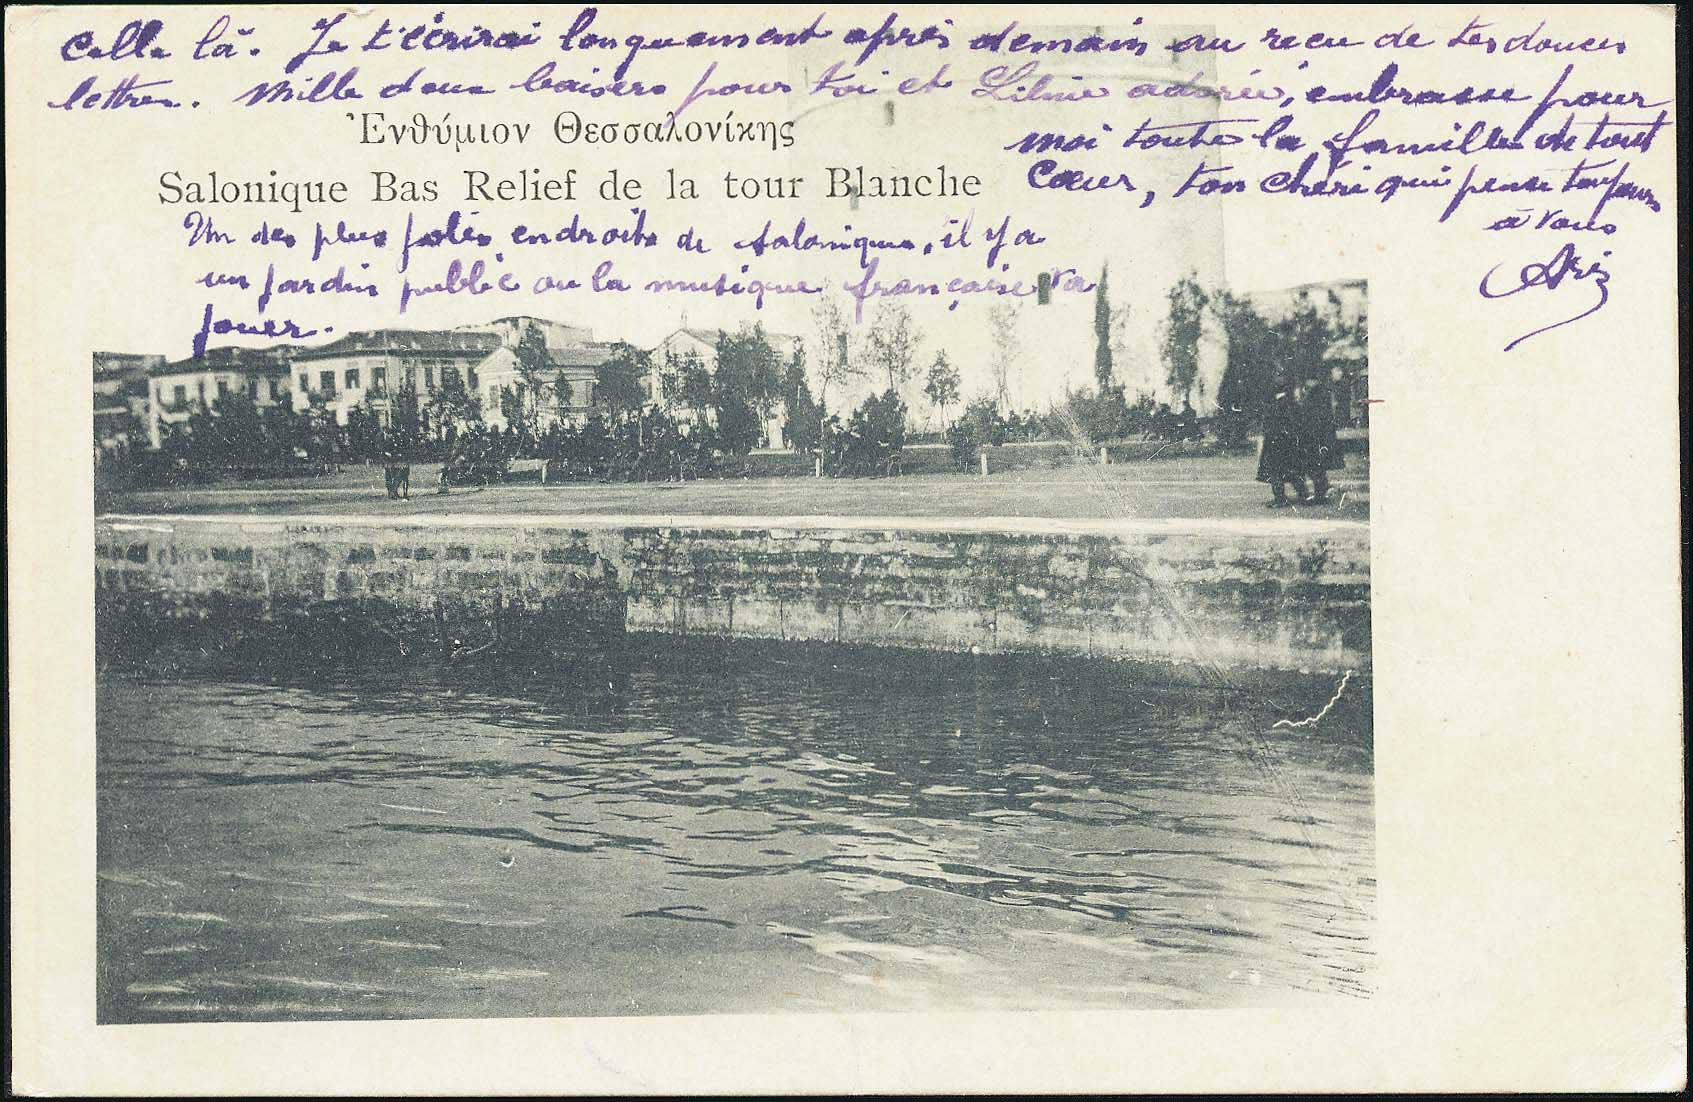 celle là. Je t'écrirai longuement après demain au recu de tes douces
lettres. Mille doux baisers pour toi et Lilnie adorée, embrasse pour
moi toute la famille de tout
Coeur, ton chéri qui pense toujours
à vous
Ἐνθύμιον Θεσσαλονίκης
Salonique Bas Relief de la tour Blanche
Un des plus jolis endroits de Salonique, il y a
un jardin public ou la musique française va
jouer.